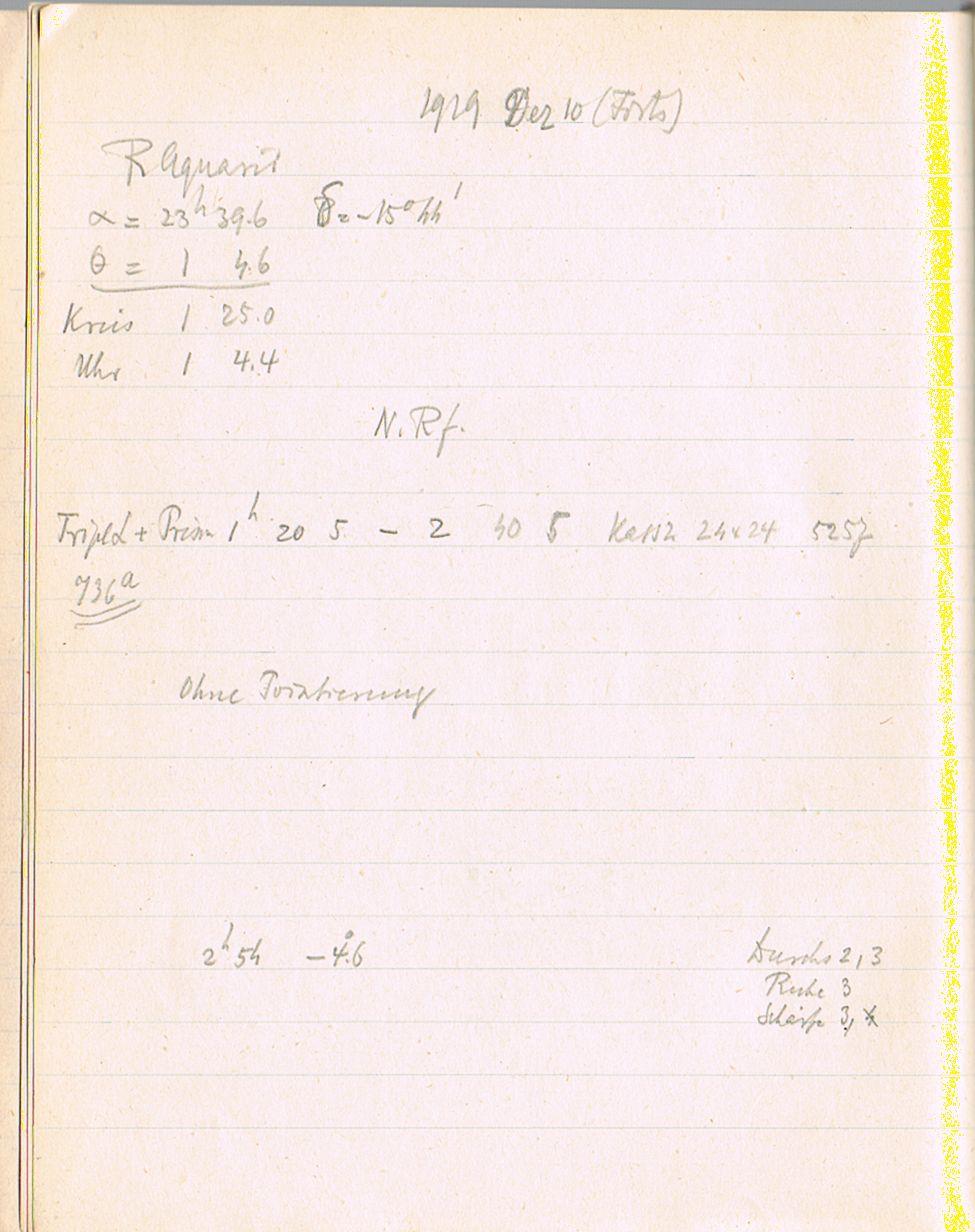 1919 Dez 10 (Forts)
R Aquarii
α = 23ʰ 39.6 δ = -15°44'
θ = 1 4.6
Kreis 1 25.0
Uhr 1 4.4
N. Rf.
Triplet + Prism 1ʰ 20 5 – 2 40 5 Kass2 24x24 5257
736ᵃ
Ohne Pointierung
2ʰ 54 -4.°6
Durchs 2,3
Ruhe 3
Schärfe 3,